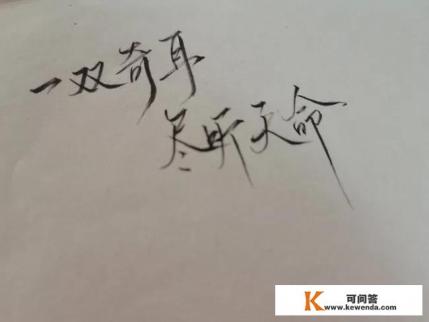 一双奇耳
尽听天命
K 可问答
www.kewenda.com